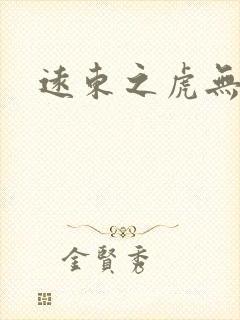 遠東之虎無
金賢秀